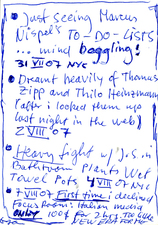 • Just seeing Marcus
Nispel's To-Do-Lists
... mind boggling!
31 VII 07 NYC
• Dreamt heavily of Thomas
Zipp and Thilo Heinzmann
(after i looked them up
last night in the web)
2 VIII 07
• Heavy fight w/ J.S. in
Bathroom Plants Wet
Towel Pots, 4 VIII 07 NYC
• 7 VIII 07 First time i declined
Focus Room: Italian media
only 100€ for 2 hrs. Too little